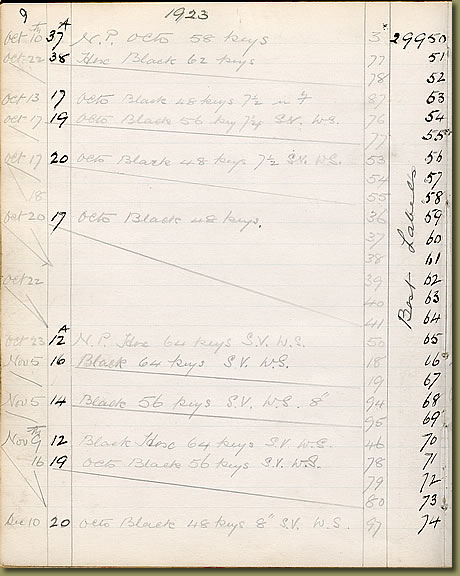 9 1923
Oct 10th 37 A N.P. Octo 58 keys 3 29950
Oct 22 38 Hex Black 62 keys 77 51
78 52
Oct 13 17 Octo Black 48 keys 7½ 87 53
Oct 17 19 Octo Black 56 key 7¼ S.V. W.S. 76 54
77 55
Oct 17 20 Octo Black 48 keys 7½ S.V. W.S. 53 56
54 57
18 55 58
Oct 20 17 Octo Black 48 keys. 36 59
37 60
38 61
Oct 22 39 62
40 63
41 64
Best Labels
Oct 23 12 A N.P. Hex 64 keys S.V. W.S. 50 65
Nov 5 16 Black 64 keys S.V. W.S. 18 66
19 67
Nov 5 14 Black 56 keys S.V. W.S. 8" 94 68
95 69
Nov 9th 12 Black Hex 64 keys S.V. W.S. 46 70
16 19 Octo Black 56 keys S.V. W.S. 78 71
79 72
80 73
Dec 10 20 Octo Black 48 keys 8" S.V. W.S. 97 74